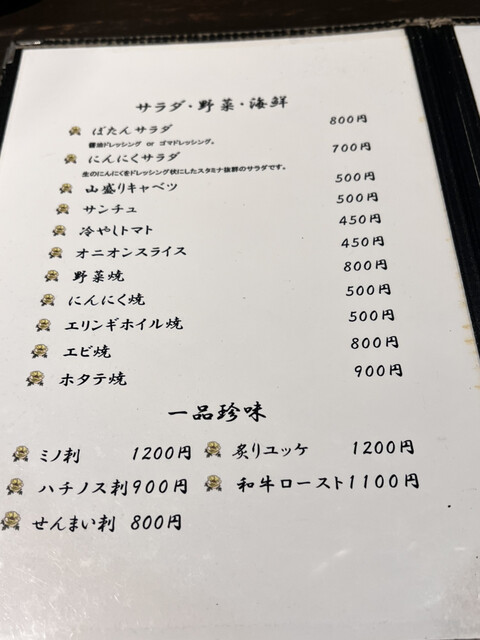 サラダ・野菜・海鮮
ぼたんサラダ 800円
醤油ドレッシング or ゴマドレッシング。
にんにくサラダ 700円
生のにんにくをドレッシング状にしたスタミナ抜群のサラダです。
山盛りキャベツ 500円
サンチュ 500円
冷やしトマト 450円
オニオンスライス 450円
野菜焼 800円
にんにく焼 500円
エリンギホイル焼 500円
エビ焼 800円
ホタテ焼 900円
一品珍味
ミノ刺 1200円 炙りユッケ 1200円
ハチノス刺 900円 和牛ロースト 1100円
せんまい刺 800円